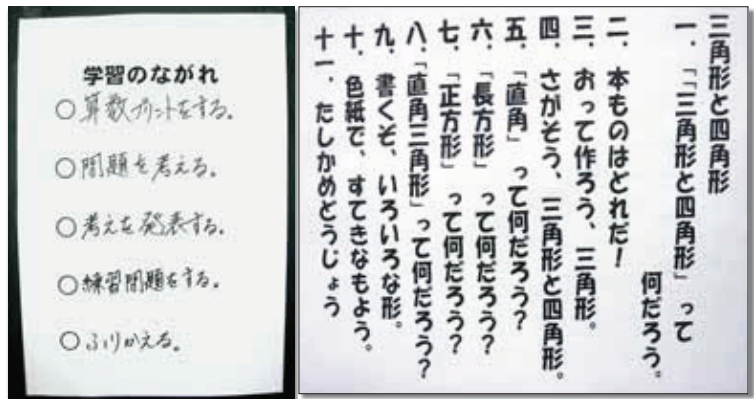 学習のながれ
○算数プリントをする。
○問題を考える。
○考えを発表する。
○練習問題をする。
○ふりかえる。
三角形と四角形
一、「「三角形と四角形」って
何だろう。
二、本ものはどれだ！
三、おって作ろう、三角形。
四、さがそう、三角形と四角形。
五、「直角」って何だろう？
六、「長方形」って何だろう？
七、「正方形」って何だろう？
八、「直角三角形」って何だろう？
九、書くぞ、いろいろな形。
十、色紙で、すてきなもよう。
十一、たしかめどうじょう